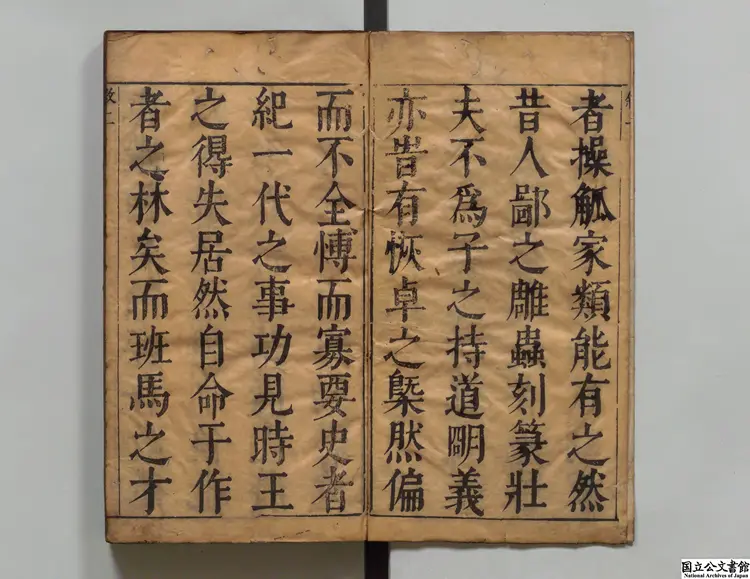 者操觚家類能有之然
昔人鄙之雕蟲刻篆壯
夫不爲子之持道明義
亦皆有恢卓之槩然偏
而不全愽而寡要史者
紀一代之事功見時王
之得失居然自命于作
者之林矣而班馬之才
国立公文書館
National Archives of Japan